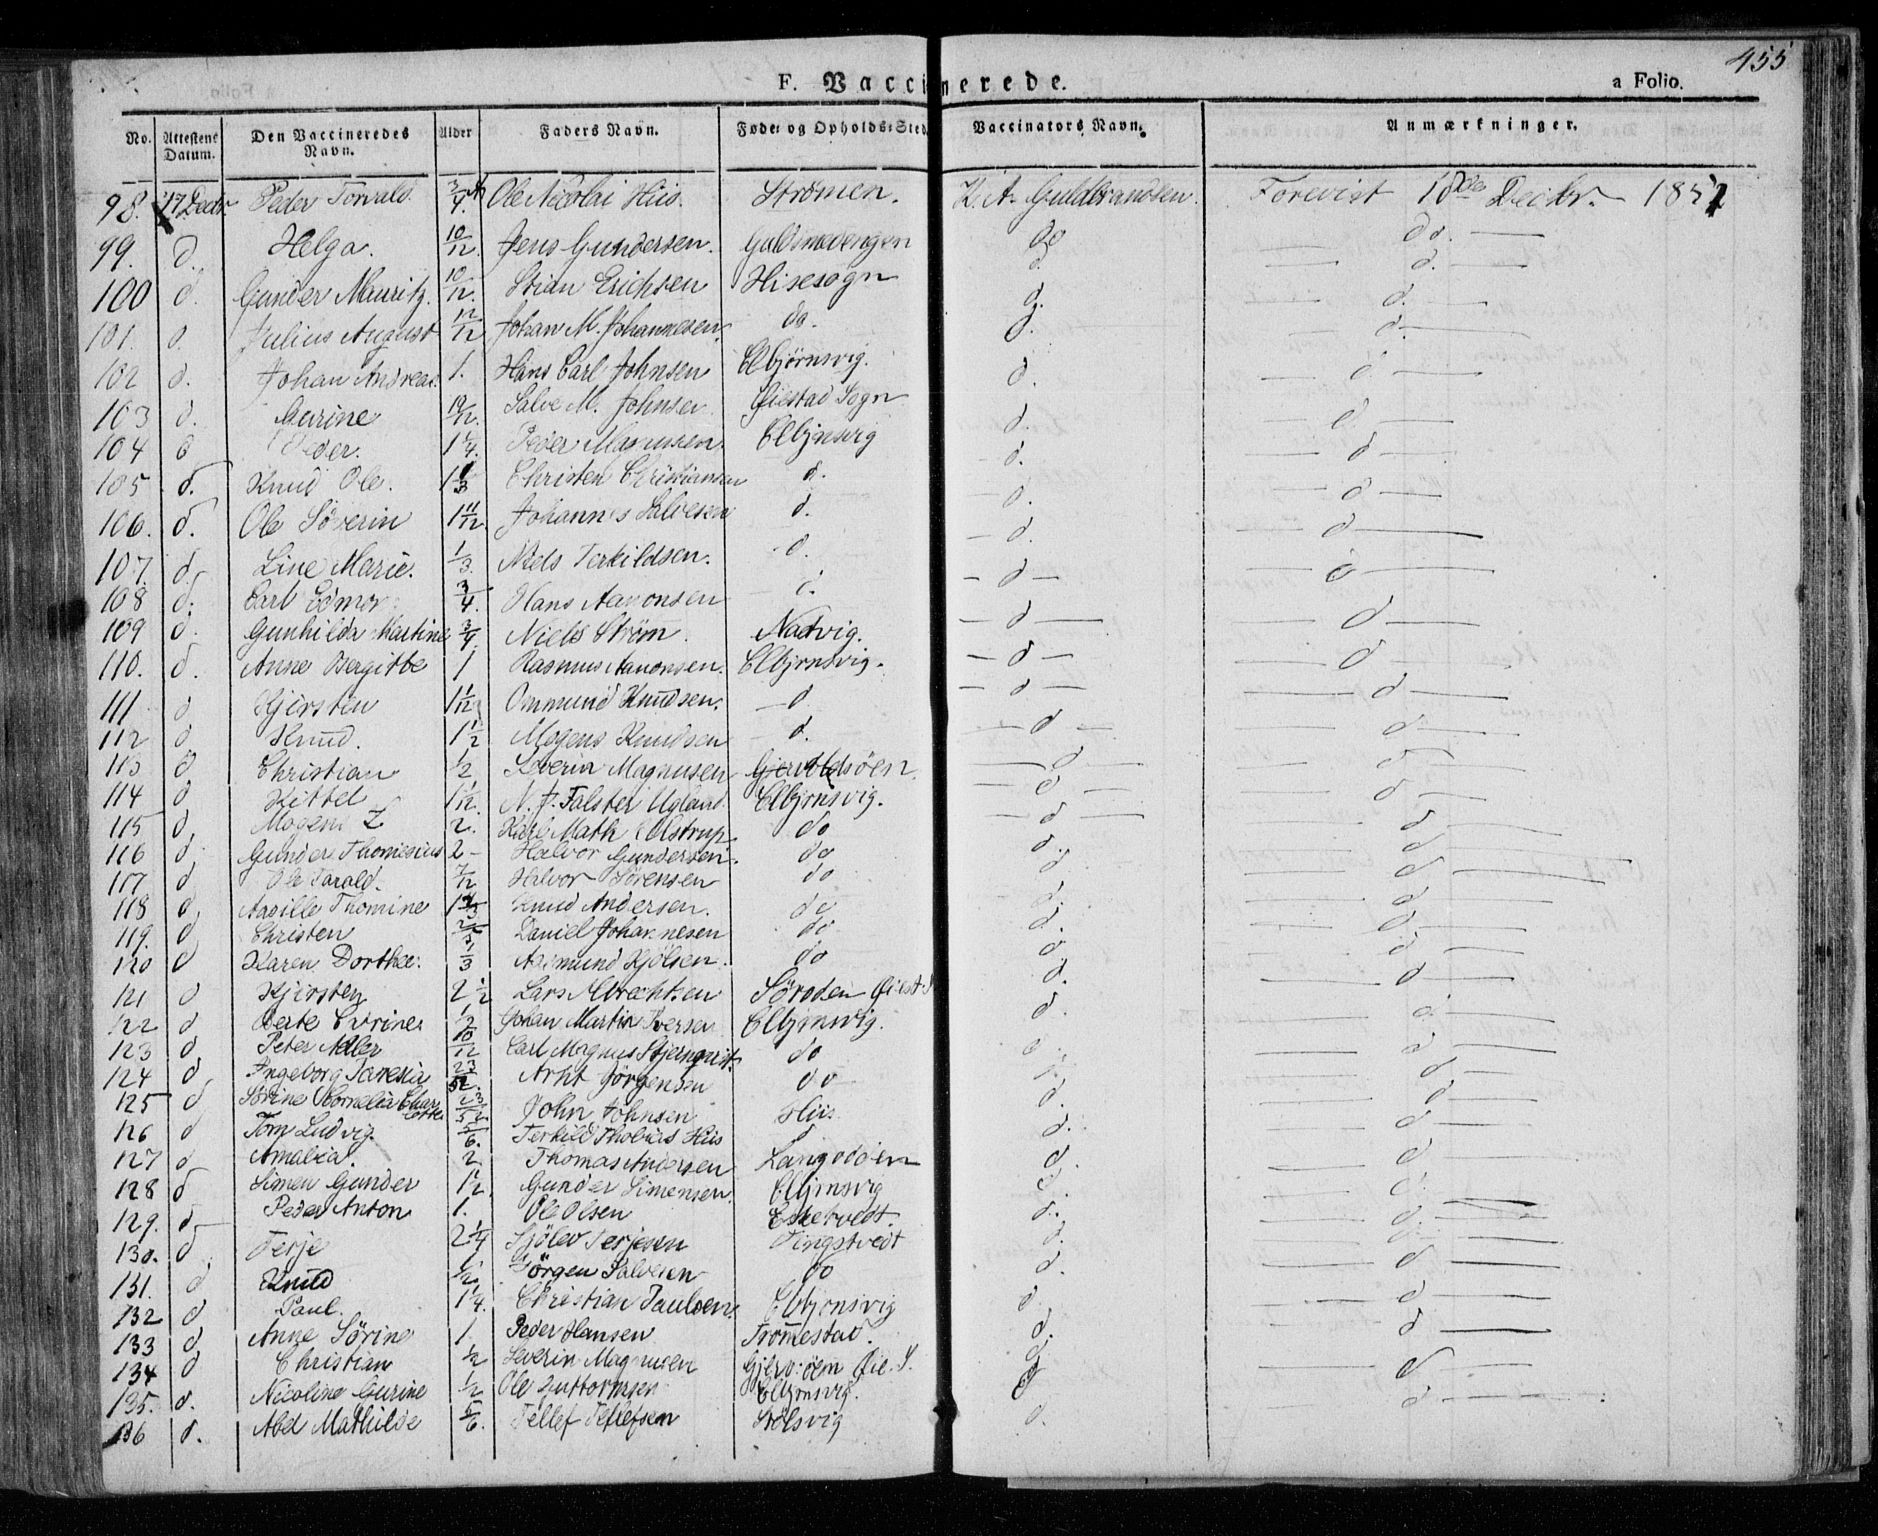 455
F. Vaccinerede. a Folio.
No. Attestens Datum. Den Vaccineredes Navn. Alder Faders Navn. Føde- og Opholds-Sted Vaccinators Navn. Anmærkninger.
98. 17 Decbr Peder Torvald 3/4 A Ole Nicolai Hiis. Strömen. K. A. Guldbrandsen. Forevist 18de Decbr. 1851
99. d. Helga. 10/12 Jens Gundersen. Guldsmedengen do — do. —
100 d. Gunder Mauritz. 10/12. Stian Erichsen Hisesogn d. — d. —
101. d. Julius August 12/12 Johan M. Johannesen. do. d. — d. —
102 d. Johan Andreas. 1. Hans Carl Johnsen Elbjörnsvig. d. — d —
103 d. Gurine 19/12. Salve M. Johnsen Øiestad Sogn d. — d —
104 d Peder. 1 1/4. Peder Magnusen. Elbjnsvig d. — d —
105 d. Knud Ole. 1 1/3 Christen Christiansen d. d. — d —
106. d. Ole Söverin 1 11/12. Johannes Salvesen d. d. — d —
107. d. Line Marie. 1/3. Niels Terkildsen. d. — d — — d —
108 d. Carl Edmor 3/4. Hans Aanonsen d. — d — — d —
109 d. Gunhilda Martine 3/4. Niels Ström. Natvig. — d — — d —
110. d. Anne Bergitte 1 Rasmus Aanonsen. Elbjrnsvig. — d — — d —
111 d Kjersten 1 1/12 Ommund Knudsen. — d — d — — d —
112 d Knud. 1 1/2 Mogens Knudsen d. — d — — d —
113 d Christian 1/2 Severin Magnusen Gjervoldsöen. — d — — d —
114 d Kittel 1 1/12. N. J. Falster Ugland. Elbjrnsvig. — d — — d —
115 d. Mogens Z 2. Karl Math Ulstrup do — d — — d —
116 d. Gunder Thomesius 2 - Halvor Gundersen. do d. — d —
117 d. Ole Tarald. 7/12 Halvor Sörensen do d — d —
118 d. Aasille Thomine Knud Andersen. do d. — d —
119. d. Christen Daniel Johannesen do d. — d —
120 d Karen Dorthee. 1/3 Aasmund Kjölsen. do d — d —
121 d Kjersten 2 1/2 Lars Albrechtsen Söroden Øiest. S d. — d —
122 d Berte Cirine 1/2 Johan Martin Iversen Elbjrnsvig. d. — d —
123 d. Peter Adler 10/12 Carl Magnus Stjernqvist. do d — d —
124 d. Ingeborg Tareria 23/52. Arnt Jörgensen do — d —
125 d Sörine Cornelia Charlotte John Johnsen Hiis d. — d —
126 d Tom Ludvig. 5/6. Terkild Thobias Hiis d. — d —
127 d Amalia. 2 Thomas Andersen Langodöen d. — d —
128 d Simen Gunder 1 1/2. Gunder Simensen. Elbjrnsvig d. — d —
129. d. Peder Anton 1. Ole Olsen Eskelvedt. d. — d —
130. d. Terje 2 1/4 Sjölev Terjesen Tingstvedt d. — d —
131. d Knud 1/2. Jörgen Salvesen do d. — d —
132 d Paul. 1 1/4. Christian Paulsen. Elbjrnsvig d. — d —
133 d. Anne Sörine 1. Peder Hansen Trömestad. d. — d —
134 d Christian 1/2 Severin Magnusen Gjerv:öen Øie. S. d — d —
135. d. Nicoline Gurine 1/2 Ole Guttormsen Elbjrnsvig. d — d —
136 d. Abel Mathilde 5/6. Tellef Tellefsen Stölsvig d.